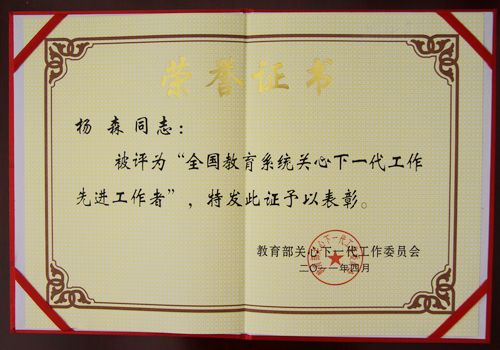 荣誉证书
杨森同志：
被评为“全国教育系统关心下一代工作
先进工作者”，特发此证予以表彰。
教育部关心下一代工作委员会
二〇一一年四月